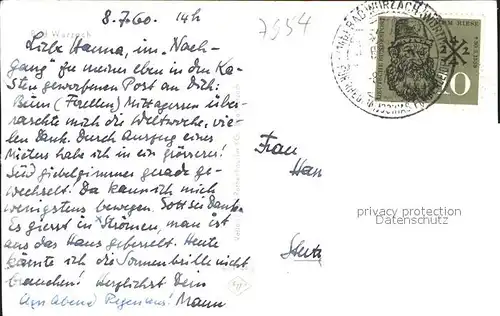 8.7.60. 14h
7954
Bad Wurzach
Liebe Hanna, im "Nach-
gang" zu meiner eben in den Ka-
sten geworfenen Post an Dich:
Beim (Forellen) Mittagessen über-
raschte mich die Weltwoche, vie-
len Dank. Durch Auszug eines
Mieters habe ich in ein grösseres
Südgiebelzimmer gerade ge-
wechselt. Da kann ich mich
wenigstens bewegen. Gott sei Dank.
Es giesst in Strömen, man ist
aus das Haus gefesselt. Heute
könnte ich die Sonnenbrille nicht
brauchen! Herzlichst Dein
Am Abend Regenaus! Mann
Frau
Han
Stutz
BAD WURZACH
ADAM RIESE
10
privacy protection
Datenschutz